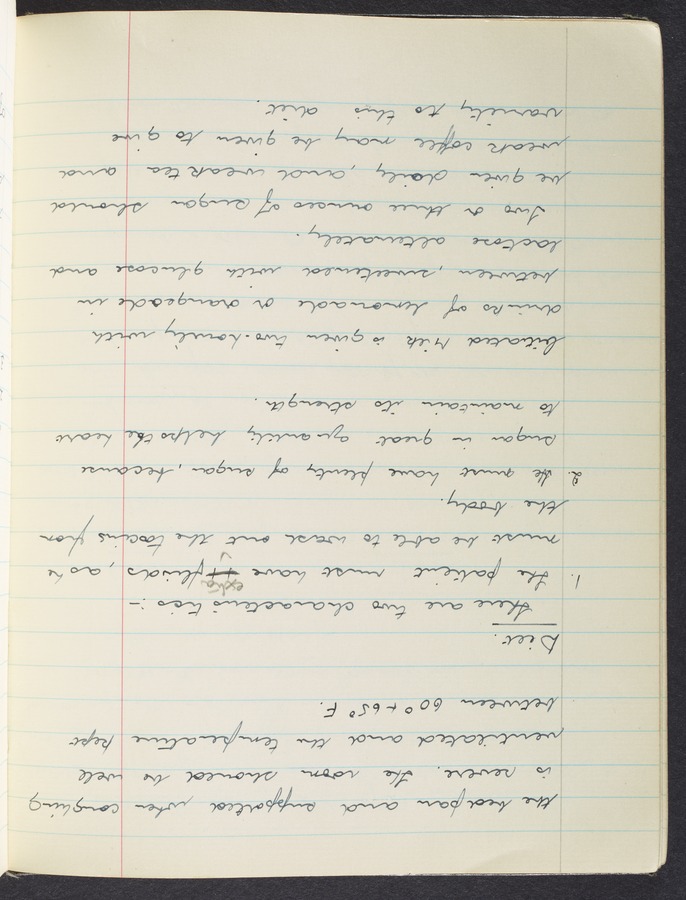 the bedpan and supported when coughing
is severe. The room should be well
ventilated and the temperature kept
between 60° + 65° F.
Diet.
There are two characteristics :-
1. The patient must have extra fluids, as he
must be able to wash out the toxins from
the body.
2. He must have plenty of sugar, because
sugar in great quantity helps the heart
to maintain its strength.
Citrated Milk is given two-hourly with
drinks of lemonade or orangeade in
between, sweetened with glucose and
lactose alternately.
Two or three ounces of sugar should
be given daily, and weak tea and
weak coffee may be given to give
variety to this diet.